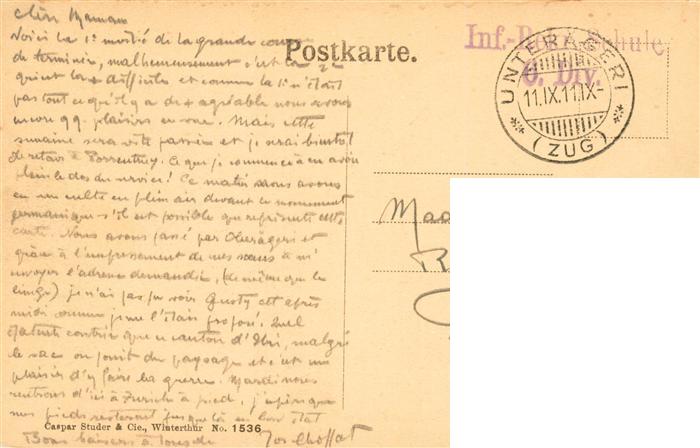 chère Maman
Voici la 1e moitié de la grande course
de terminée, malheureusement c'est la 2e
qui est la + difficile et comme la 1e n'était
pas tout ce qu'il y a de + agréable nous avons
encore qq. plaisirs en vue. Mais cette
semaine sera vite passée et je serai bientôt
de retour à Porrentruy. Ce que je commence à en avoir
plein le dos du service! Ce matin nous avons
eu un culte en plein air devant ce monument
germanique s'il est possible que représente cette
carte. Nous avons passé par Oberägeri et
grâce à l'empressement de mes sœurs à m'
envoyer l'adresse demandée, (de même que le
linge) je n'ai pas pu voir Gusty cet après
midi comme je me l'étais proposé. Quel
contrée que ce canton d', malgré
le sac on jouit du paysage et c'est un
plaisir d'y faire la guerre. Mardi nous
rentrons d'ici à Zurich à pied, j'espère que
mes pieds resteront jusque là en bon état
Bons baisers à tous de Jos Choffat
Postkarte.
Inf.-Rekr.-Schule
6. Div.
UNTERÄGERI
11.IX.11.IX-
(ZUG)
Caspar Studer & Cie., Winterthur No. 1536